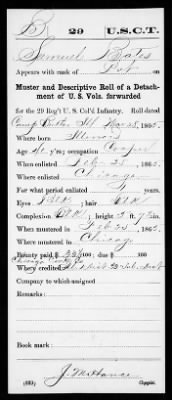 B 29 U.S.C.T.
Samuel Bates
Appears with rank of Pvt on
Muster and Descriptive Roll of a Detach-
ment of U. S. Vols. forwarded
for the 29 Reg't U. S. Col'd Infantry. Roll dated
Camp Butler Ill Mar 25, 1865.
Where born Illinois
Age y'rs; occupation Cooper
When enlisted Feb 25, 1865.
Where enlisted Chicago
For what period enlisted years.
Eyes ; hair Blk
Complexion Blk; height 5 ft. in.
When mustered in Feb 25, 1865.
Where mustered in Chicago
Bounty paid $ 100; due $ 100
Where credited
Company to which assigned
Remarks:
Book mark:
J. M. Hance
(639) Copyist.